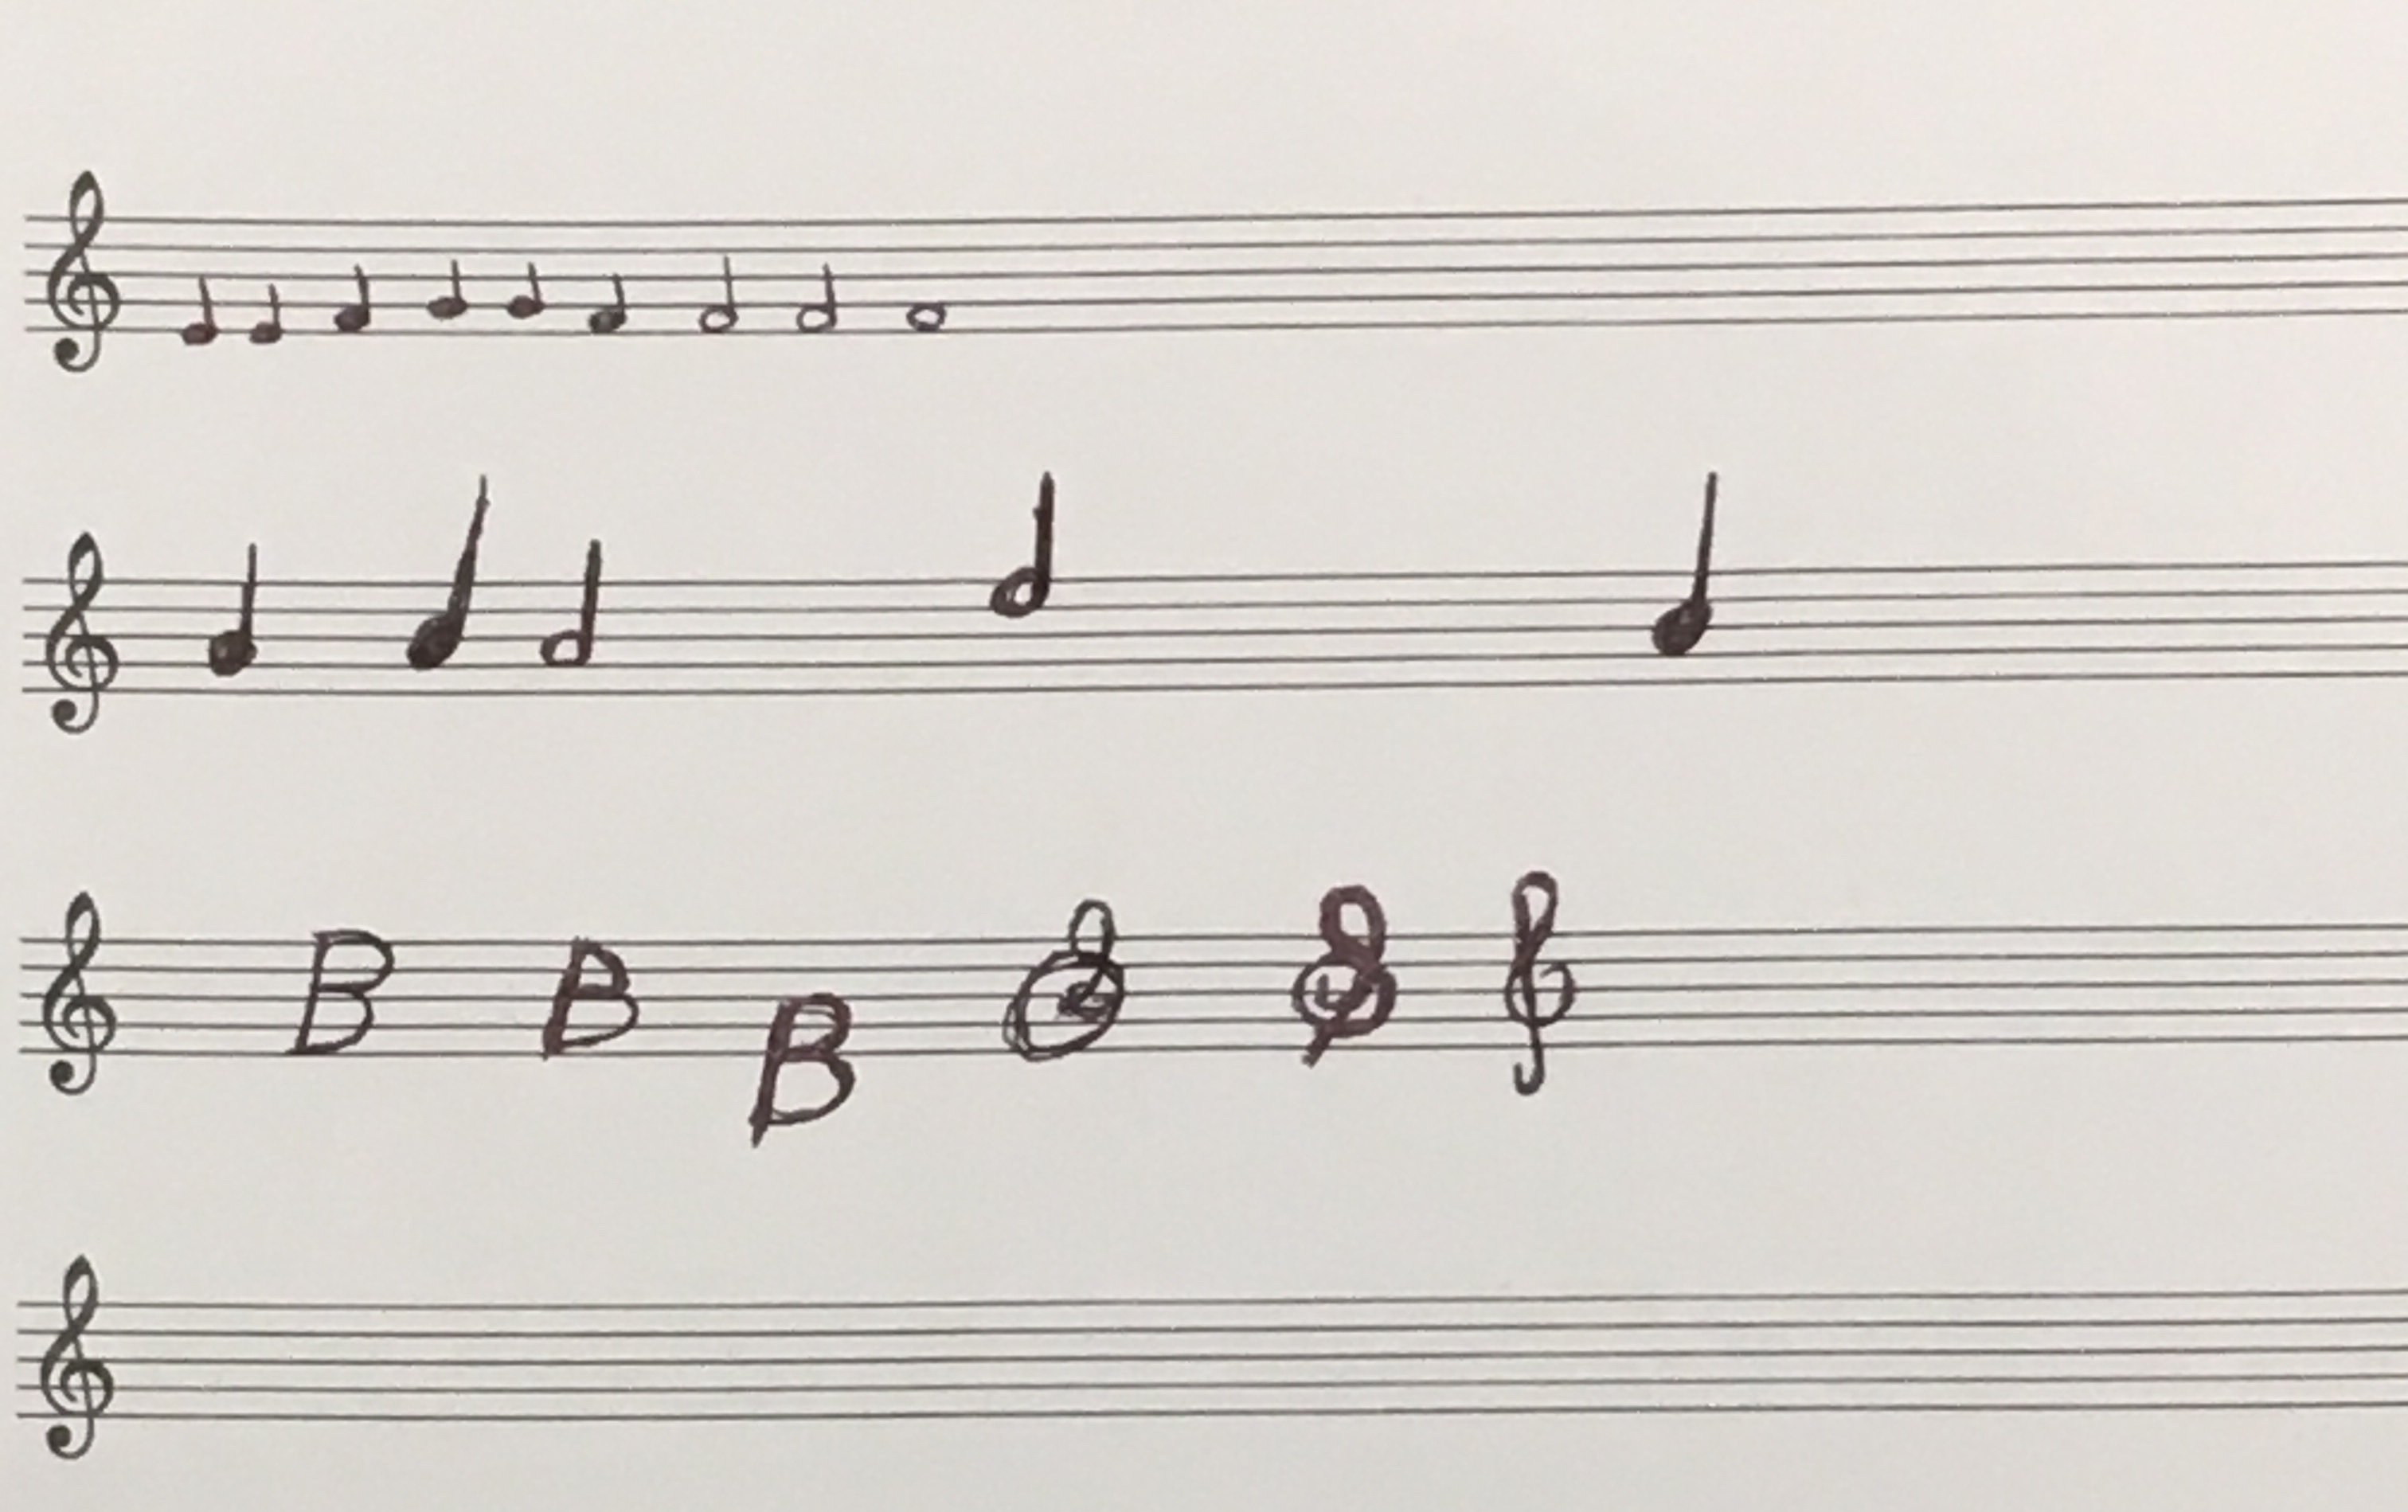 B B B